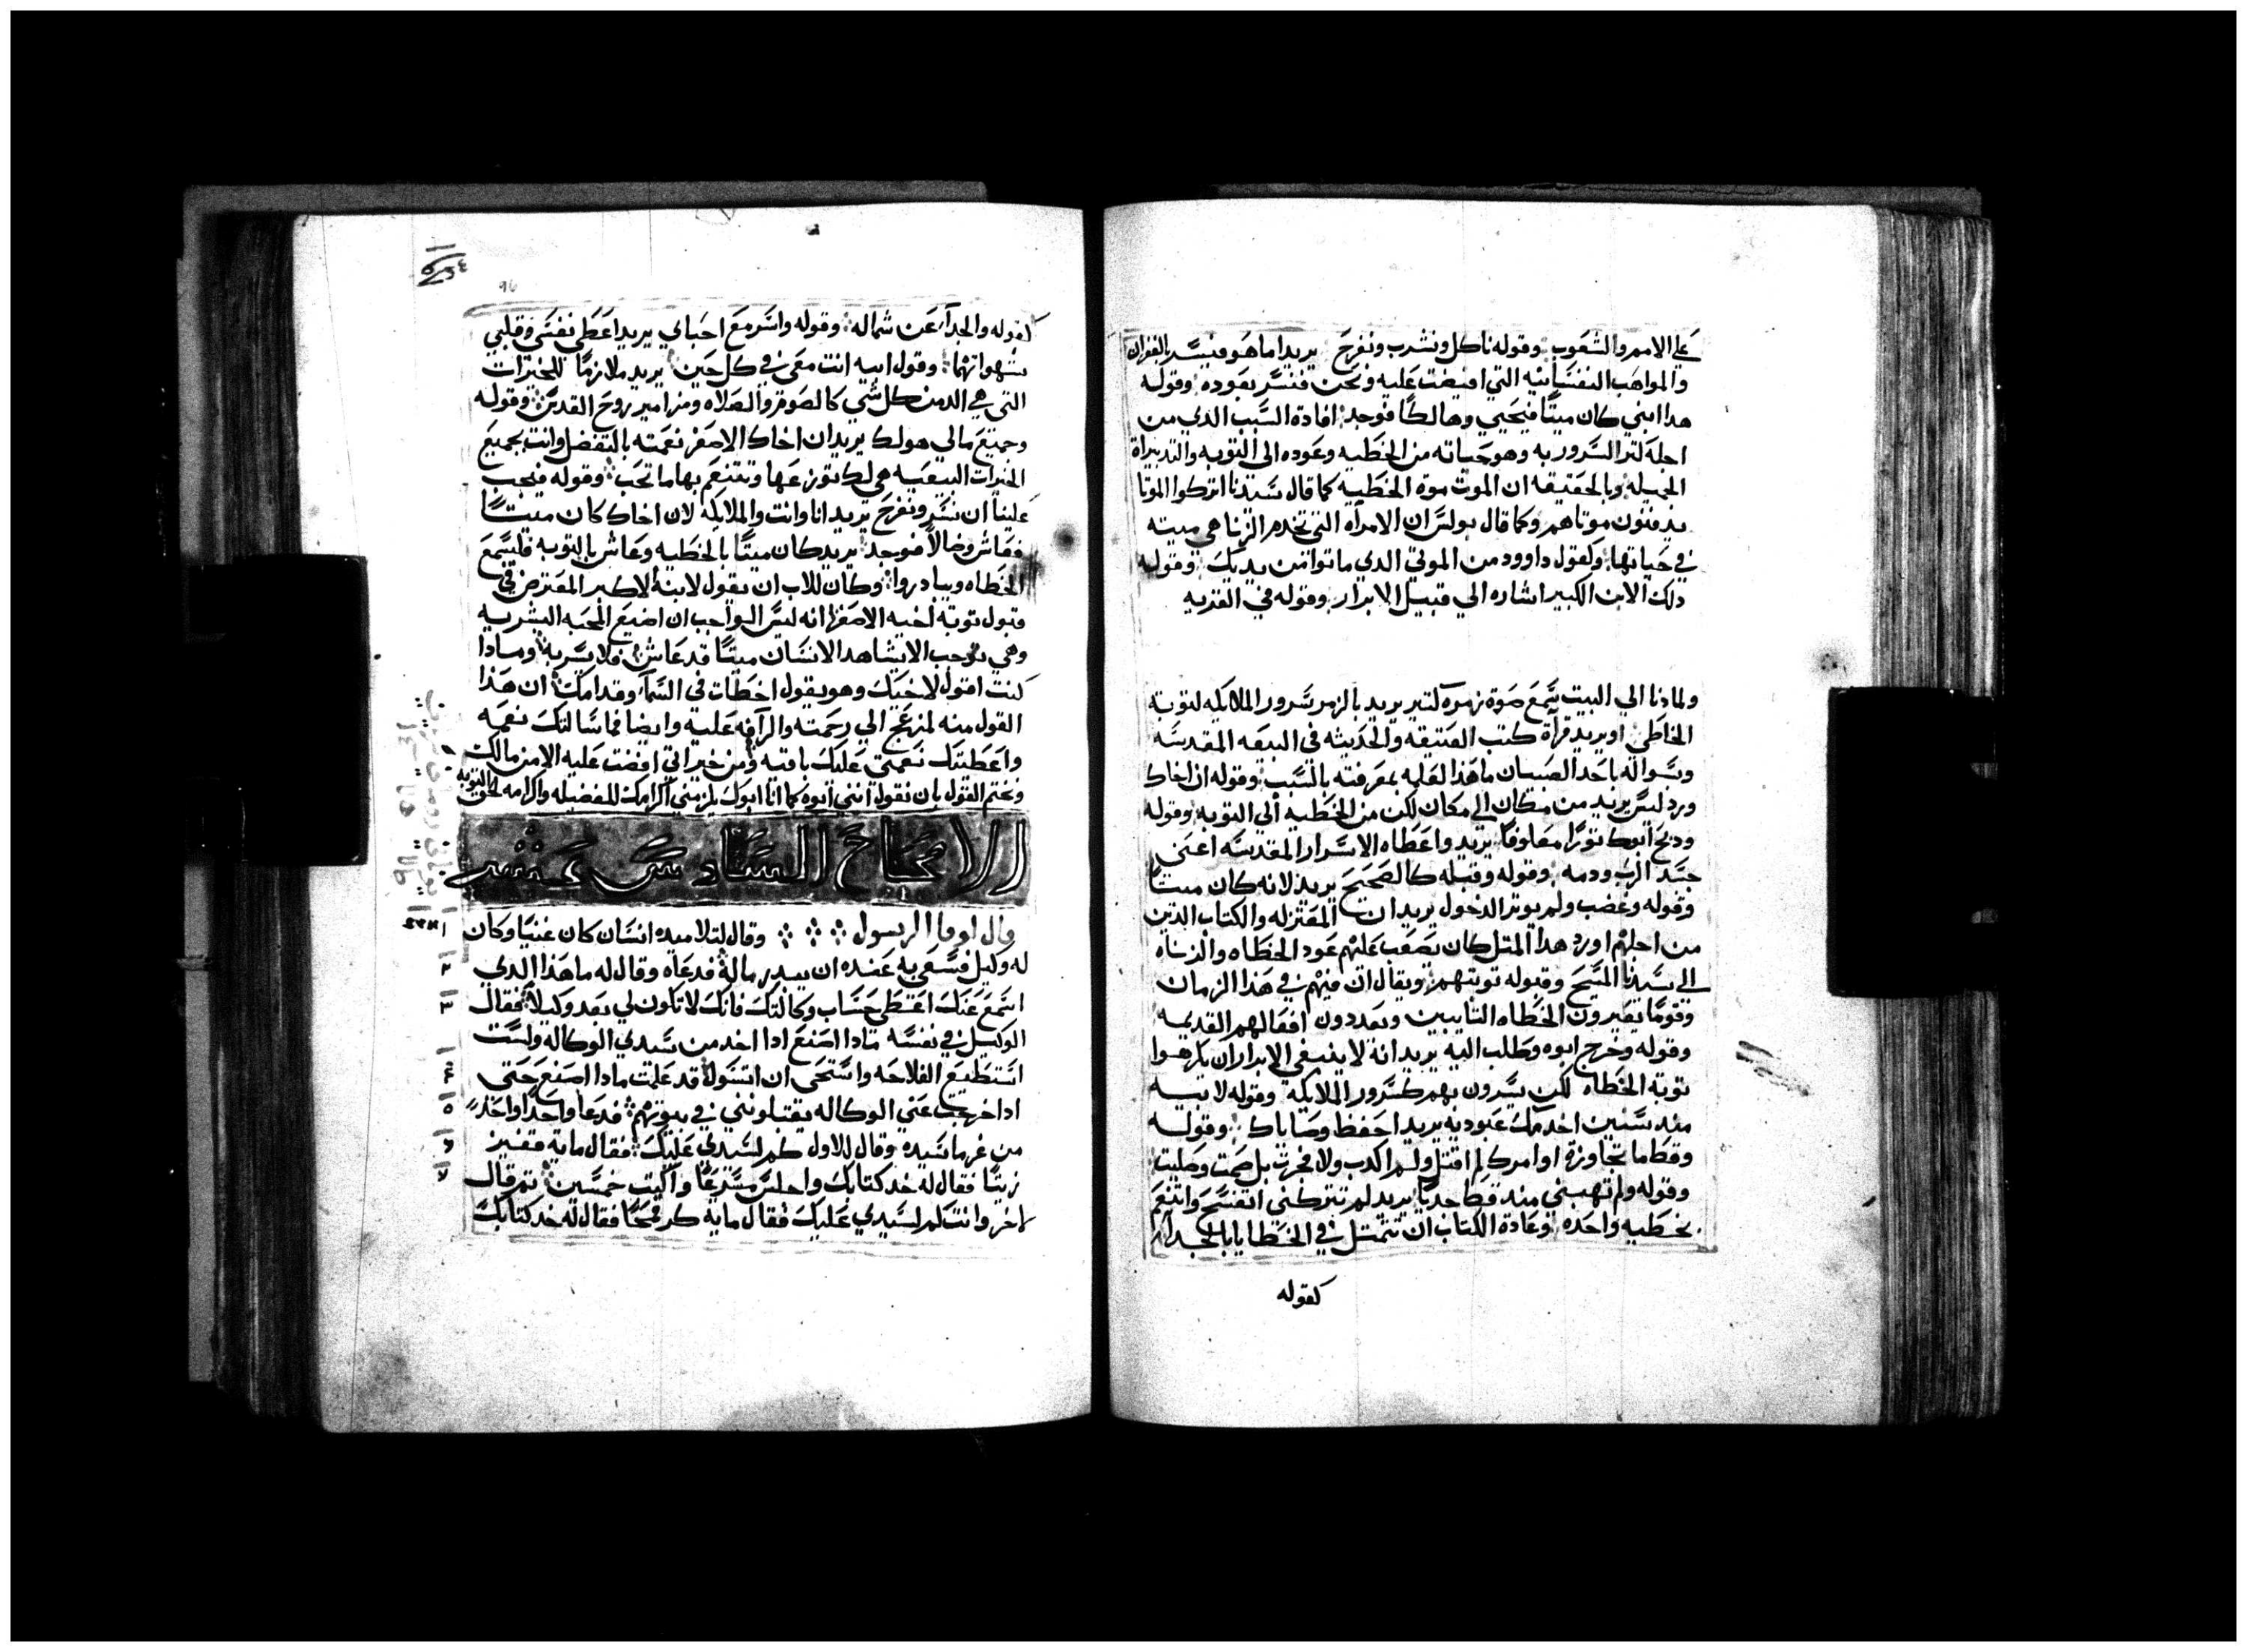 علي الامم والشعوب وقوله ناكل ونشرب ونفرح يريد اما هو فيسر بالغفران
والمواهب النفسانيه التي افيضت عليه ونحن فنسر بعوده وقوله
هدا ابني كان ميتًا فيحيي وهالكًا فوجد افادة السبب الدي من
اجله لتر السرور به وهو حياته من الخطيه وعوده الي التوبه والتدبيراة
الجميله وبالحقيقه ان الموت موة الخطيه كما قال سيدنا اتركوا الموتا
يدفنون موتاهم وكما قال بولس ان الامراه التي تخدم الزنا هي ميته
في حياتها وكقول داوود من الموتي الدي ماتوا من يديك وقوله
دلك الابن الكبير اشاره الي قبيل الابرار وقوله في القريه
ولما دنا الي البيت سمع صوة زموه كتير يريد بالزمر سرور الملايكه لتوبة
الخاطي او يريد قرأة كتب العتيقه والحديثه في البيعه المقدسه
وسواله باحد الصبيان ما هذا لمعرفته بالسبب وقوله ان اخاك
ورد ليس يريد من مكان الي مكان لكن من الخطيه الي التوبه وقوله
ودبح ابوك تورًا معلوفًا يريد واعطاه الاسرار المقدسه اعني
جسد الرب ودمه وقوله وقبله كالصحيح يريد لانه كان ميتًا
وقوله وغضب ولم يوتر الدخول يريد ان المعتزله والكتاب الدين
من اجلهم اورد هدا المتل كان يصعب عليهم عود الخطاه والزناه
الي سيدنا المسيح وقبوله توبتهم ويقال ان فيهم في هذا الزمان
وقومًا يعيرون الخطاه التايبين ويعددون افعالهم القديمه
وقوله وخرج ابوه وطلب اليه يريد انه لا ينبغي للابرار ان يكرهوا
توبة الخطاه لكن يسرون بهم كسرور الملايكه وقوله لابيه
مند سنين اخدمك عبوديه يريد احفظ وصاياك وقوله
وقط ما تجاوزة اوامرك لم اقتل ولم اكدب ولا فجرت بل صمت وصليت
وقوله ولم تهبني مند قط جديًا يريد لم تتركني اتفسح واتنعم
بخطيه واحده وعادة الكتاب ان تتمتل في الخطايا بالجدا
كقوله
كقوله والجدا عن شماله وقوله واسر مع احباي يريد اعطي نفسي وقلبي
شهواتهما وقول ابيه انت معي في كل حين يريد ملازمًا للخيرات
التي هي الد من كل شي كالصوم والصلاه ومزامير روح القدس وقوله
وجميع مالي هو لك يريد ان اخاك الاصغر نعمته بالتفضل وانت بجميع
الخيرات البيعيه هي لك توزعها وتتنعم بها ما تحب وقوله فيجب
علينا ان نسر ونفرح يريد انا وانت والملايكه لان اخاك كان ميتًا
فعاش وضالًا فوجد يريد كان ميتًا بالخطيه وعاش بالتوبه فليسمع
الخطاه ويبادروا وكان للاب ان يقول لابنه الاكبر المعترض في
قبول توبة اخيه الاصغر انه ليس الواجب ان اضيع المحبه البشريه
وهي توجب الا يشاهد الانسان ميتًا قد عاش فلا يسر به ومادا
كنت اقول لاخيك وهو يقول اخطات في السما وقدامك ان هذا
القول منه لمزعج الي رحمته والرآفه عليه وايضا فما سالتك نعمه
واعطيتك نعمتي عليك باقيه ومن خيراتي افضت عليه الا من مالك
ونختم القول بان نقول انني ابوه كما انا ابوك يلزمني اكرامك للفضيله واكرامه لحق التوبه
الاصحاح السادس عشر
قال لوقا الرسول وقال لتلاميده انسان كان غنيًا وكان
له وكيل فسعي به عنده ان يبدر ماله فدعاه وقال له ما هذا الدي
اسمع عنك اعطي حساب وكالتك فانك لا تكون لي بعد وكيلًا فقال
الوكيل في نفسه مادا اصنع ادا اخد من سيدي الوكاله ولست
استطيع الفلاحه واستحي ان اتسول قد علمت مادا اصنع حتي
ادا خرجت عني الوكاله يقبلونني في بيوتهم فدعا واحدًا واحدًا
من غرما سيده وقال للاول كم لسيدي عليك فقال ماية قفيز
زيتًا فقال له خد كتابك واجلس مسرعًا واكتب خمسين تم قال
لاخر وانت كم لسيدي عليك فقال مايه كر قمحًا فقال له خد كتابك